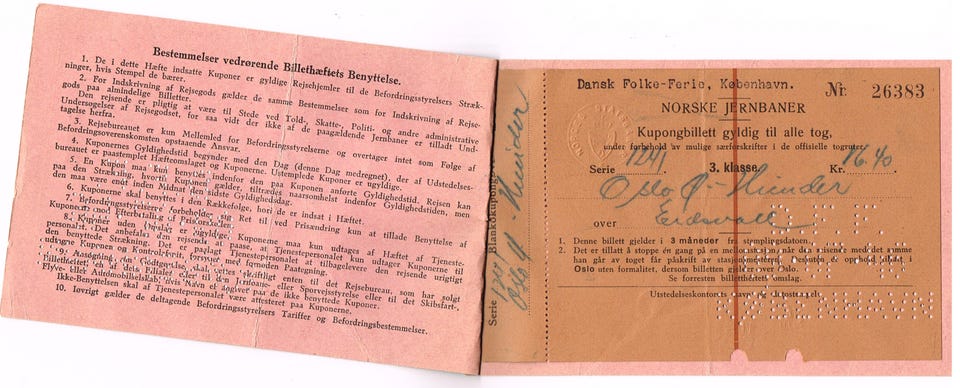 Bestemmelser vedrørende Billethæftets Benyttelse.
1. De i dette Hæfte indsatte Kuponer er gyldige Rejsehjemler til de Befordringsstyrelsers Stræk-
ninger, hvis Stempel de bærer.
2. For Indskrivning af Rejsegods gælder de samme Bestemmelser som for Indskrivning af Rejse-
gods paa almindelige Billetter.
Den rejsende er pligtig at være til Stede ved Told-, Skatte-, Politi- og andre administrative
Undersøgelser af Rejsegodset, for saa vidt der ikke af de paagældende Jernbaner er tilladt Und-
tagelse herfra.
3. Rejsebureauet er kun Mellemled for Befordringsstyrelserne og overtager intet som Følge af
Befordringsoverenskomsten opstaaende Ansvar.
4. Kuponernes Gyldighedstid begynder med den Dag (denne Dag medregnet), der af Udstedelses-
bureauet er paastemplet Hæfteomslaget og Kuponerne. Ustemplede Kuponer er ugyldige.
5. En Kupon maa kun benyttes indenfor den paa Kuponen anførte Gyldighedstid. Rejsen kan
paa den Strækning, hvortil Kuponen gælder, tiltrædes naarsomhelst indenfor Gyldighedstiden, men
den maa være endt inden Midnat den sidste Gyldighedsdag.
6. Kuponerne skal benyttes i den Rækkefølge, hvori de er indsat i Hæftet.
7. Befordringsstyrelserne forbeholder sig Ret til ved Prisændring kun at tillade Benyttelse af
Kuponerne mod Efterbetaling af Prisforskellen.
8. Kuponer uden Omslag er ugyldige. Kuponerne maa kun udtages af Hæftet af Tjeneste-
personalet. Det anbefales den rejsende at paase, at Tjenestepersonalet kun udtager Kuponerne til
den benyttede Strækning. Det er paalagt Tjenestepersonalet at tilbagelevere den rejsende urigtigt
udtagne Kuponer og Kontrolafrift, forsynet med fornøden Paategning.
9. Ansøgning om Godtgørelse skal rettes skriftligt enten til det Rejsebureau, som har solgt
Billethæftet, en af deis Filialer eller til den Jernbane- eller Sporvejsstyrelse eller til det Skibsfart-,
Flyve- eller Automobilselskab, hvis Navn er angivet paa de ikke benyttede Kuponer.
Ikke-Benyttelsen skal af Tjenestepersonalet være attesteret paa Kuponerne.
10. Iøvrigt gælder de deltagende Befordringsstyrelsers Tariffer og Befordringsbestemmelser.
Serie 1241 Blankokupong
Oslo Ø - Hunder
Dansk Folke-Ferie, København.
Nr. 26383
NORSKE JERNBANER
Kupongbillett gyldig til alle tog,
under forbehold av mulige særforskrifter i de offisielle togruter
Serie 1241 3. klasse Kr. 16.40
Oslo Ø - Hunder
over Eidsvoll
1. Denne billett gjelder i 3 måneder fra stemplingsdatoen.
2. Det er tillatt å stoppe én gang på en mellomstasjon når den reisende med det samme
han går av toget får påskrift av stasjonsmesteren. Dessuten er opphold tillatt i
Oslo uten formalitet, dersom billetten gjelder over Oslo.
Se forresten billetthefteis omslag.
Utstedelseskontorets navn og datostempel.
D.F.F.
KØBENHAVN